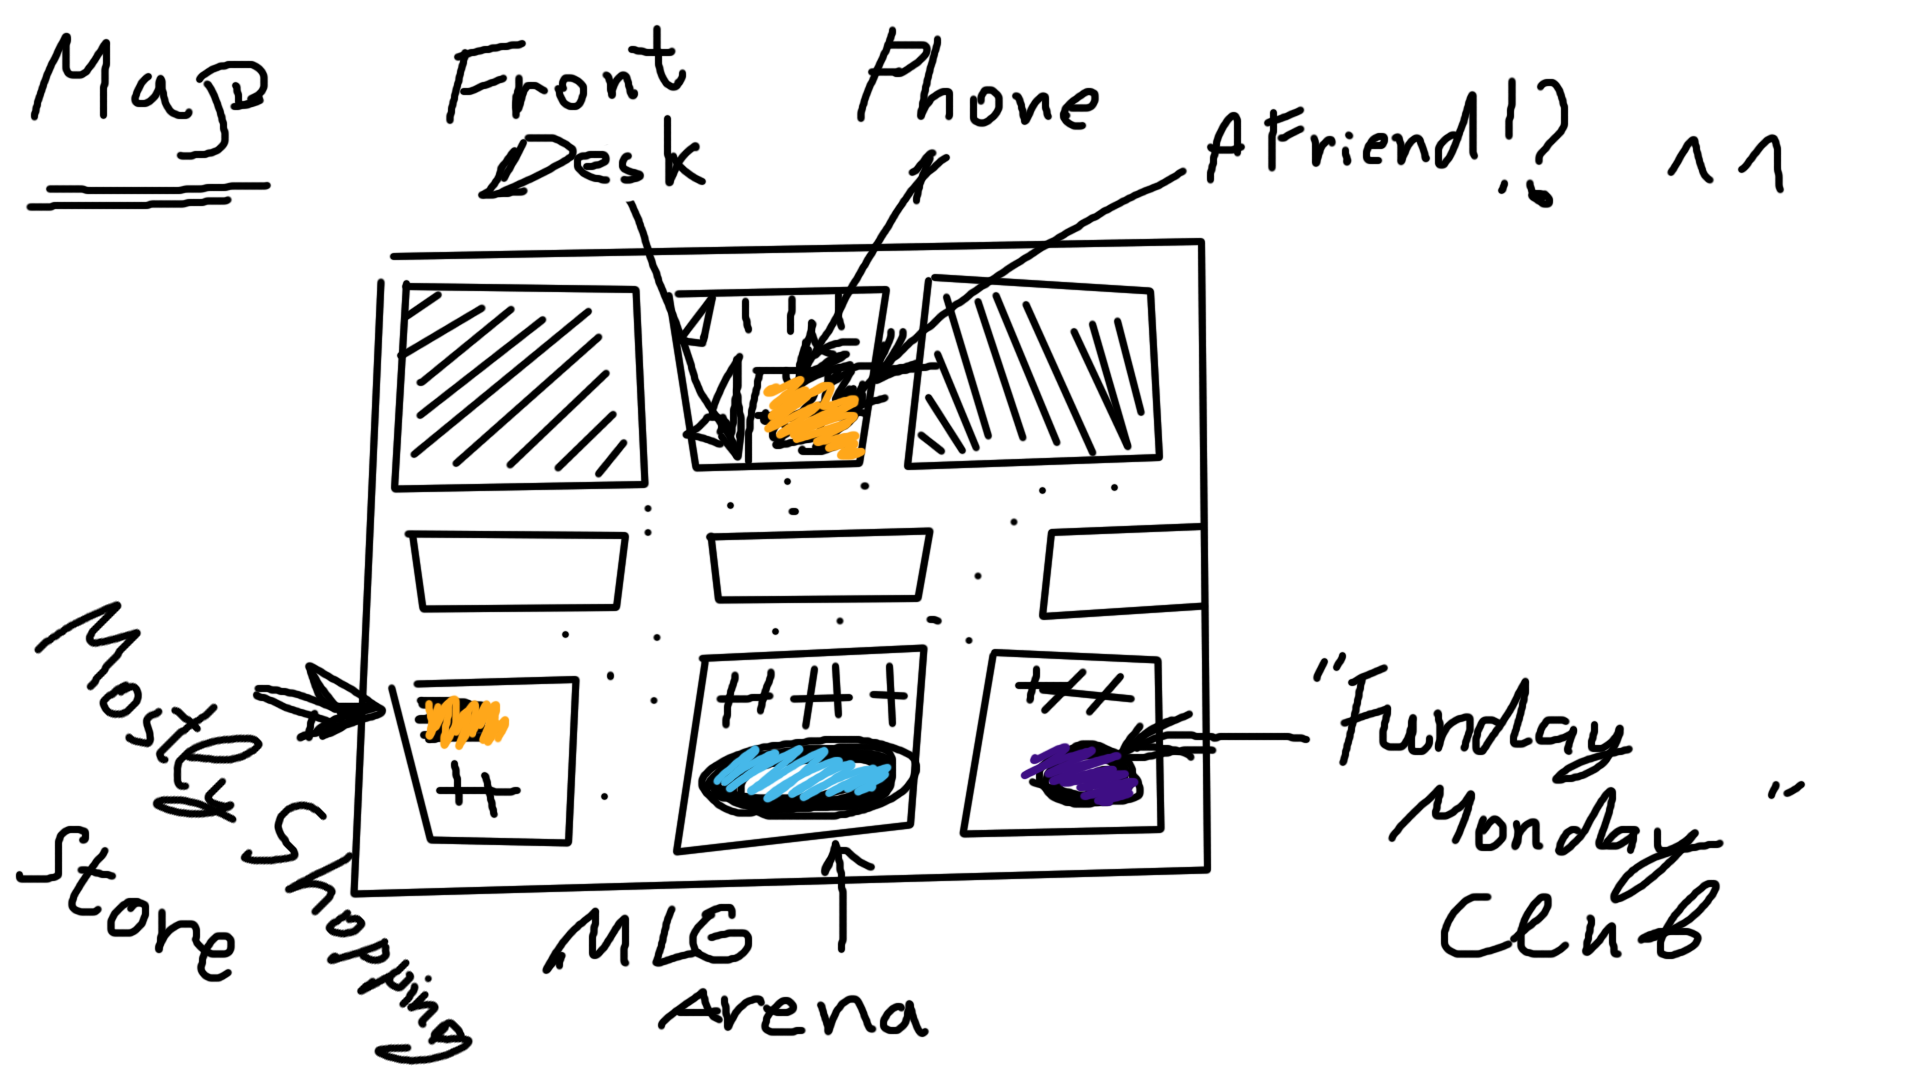 Map
Front
Desk
Phone
A Friend!? ^^
Mostly Shopping
Store
MLG
Arena
"Funday
Monday"
Club